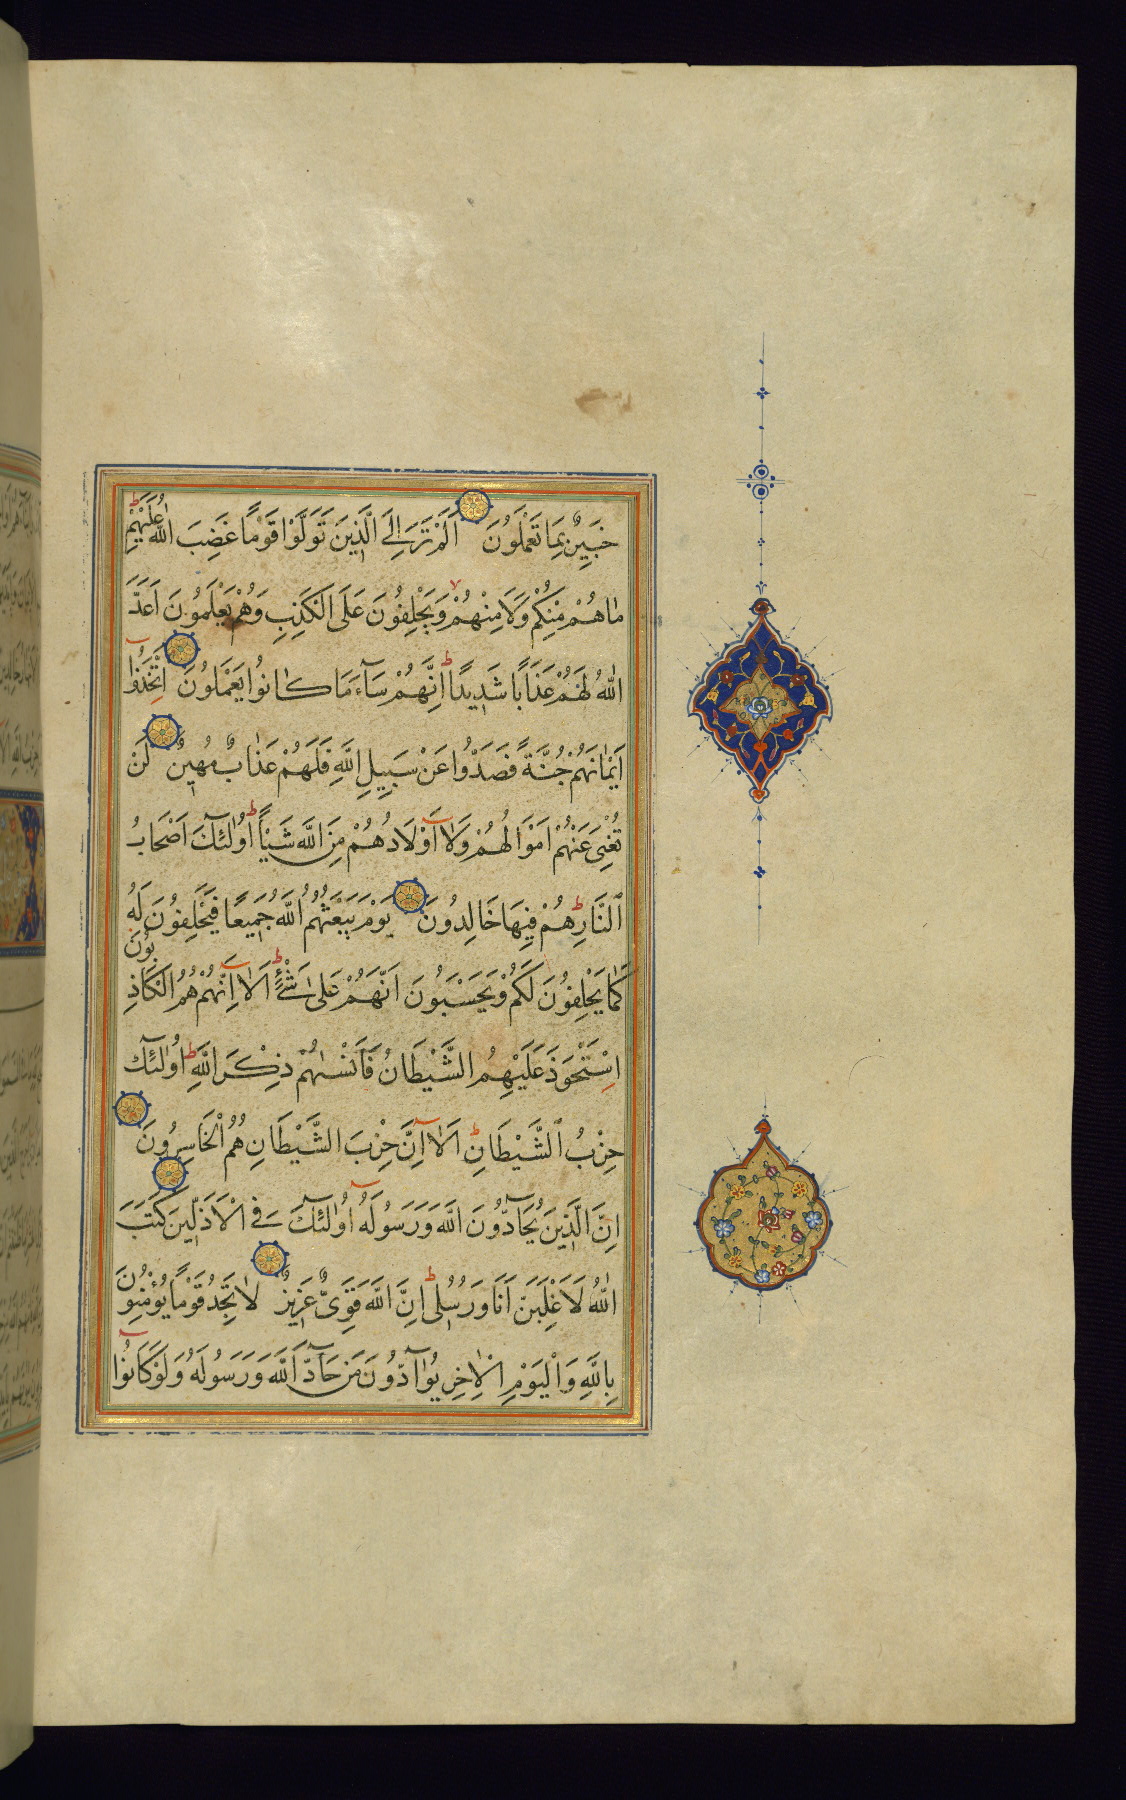 خَبِيرٌ بِمَا تَعْمَلُونَ اَلَمْ تَرَ اِلَى الَّذِينَ تَوَلَّوْا قَوْمًا غَضِبَ اللهُ عَلَيْهِمْ ط
مَا هُمْ مِنْكُمْ وَلَا مِنْهُمْ وَيَحْلِفُونَ عَلَى الْكَذِبِ وَهُمْ يَعْلَمُونَ اَعَدَّ
اللهُ لَهُمْ عَذَابًا شَدِيدًا ط اِنَّهُمْ سَآءَ مَا كَانُوا يَعْمَلُونَ اِتَّخَذُوا
اَيْمَانَهُمْ جُنَّةً فَصَدُّوا عَنْ سَبِيلِ اللهِ فَلَهُمْ عَذَابٌ مُهِينٌ لَنْ
تُغْنِىَ عَنْهُمْ اَمْوَالُهُمْ وَلَا اَوْلَادُهُمْ مِنَ اللهِ شَيْاً ط اُولٰئِكَ اَصْحَابُ
النَّارِ ط هُمْ فِيهَا خَالِدُونَ يَوْمَ يَبْعَثُهُمُ اللهُ جَمِيعًا فَيَحْلِفُونَ لَهُ
كَمَا يَحْلِفُونَ لَكُمْ وَيَحْسَبُونَ اَنَّهُمْ عَلٰى شَىْءٍ ط اَلَا اِنَّهُمْ هُمُ الْكَاذِبُونَ
اِسْتَحْوَذَ عَلَيْهِمُ الشَّيْطَانُ فَاَنْسٰيهُمْ ذِكْرَ اللهِ ط اُولٰئِكَ
حِزْبُ الشَّيْطَانِ ط اَلَا اِنَّ حِزْبَ الشَّيْطَانِ هُمُ الْخَاسِرُونَ
اِنَّ الَّذِينَ يُحَآدُّونَ اللهَ وَرَسُولَهُ اُولٰئِكَ فِى الْاَذَلِّينَ كَتَبَ
اللهُ لَاَغْلِبَنَّ اَنَا وَرُسُلِى ط اِنَّ اللهَ قَوِىٌّ عَزِيزٌ لَا تَجِدُ قَوْمًا يُؤْمِنُونَ
بِاللهِ وَالْيَوْمِ الْاٰخِرِ يُوَآدُّونَ مَنْ حَآدَّ اللهَ وَرَسُولَهُ وَلَوْ كَانُوا